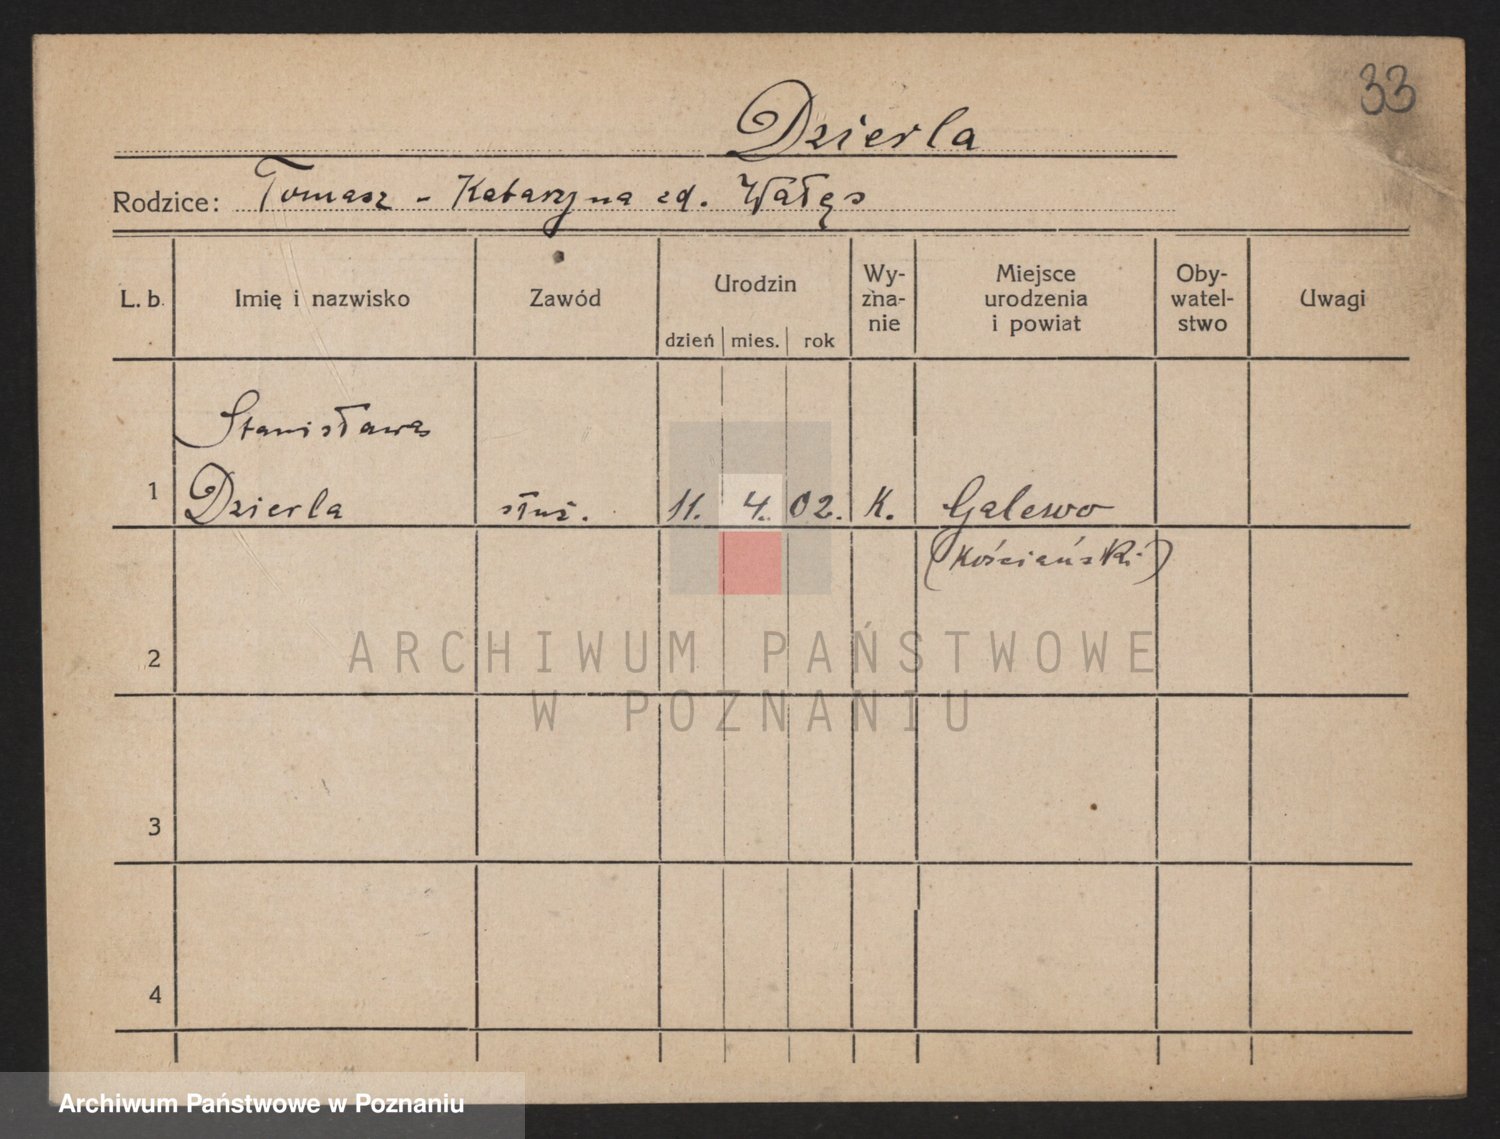 33
Dzierla
Rodzice: Tomasz - Katarzyna zd. Wałęs
L. b. Imię i nazwisko Zawód Urodzin dzień mies. rok Wy-zna-nie Miejsce urodzenia i powiat Oby-watel-stwo Uwagi
Stanisława
1 Dzierla służ. 11. 4. 02. K. Galewo
(Kościański)
2
ARCHIWUM PAŃSTWOWE
W POZNANIU
3
4
Archiwum Państwowe w Poznaniu